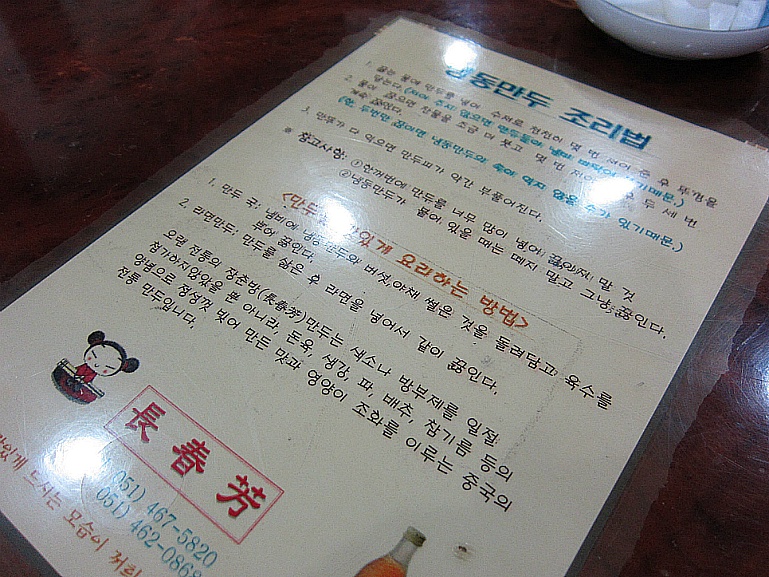 냉동만두 조리법
1. 끓는 물에 만두를 넣어 수저로 천천히 몇 번 저어 준 후 뚜껑을
닫는다.(저어 주지 않으면 만두들이 냄비 바닥에 기때문.)
2. 물이 끓으면 찬물을 조금 더 붓고 몇 번 저어 후 두 세 번
계속 끓인다.
(한 두번만 끓이면 냉동만두의 속이 익지 않을 수가 있기때문.)
3. 만두가 다 익으면 만두피가 약간 부풀어진다.
※ 참고사항: ①한꺼번에 만두를 너무 많이 넣어 끓이지 말 것
②냉동만두가 붙어 있을 때는 떼지 말고 그냥 끓인다.
<만두 맛있게 요리하는 방법>
1. 만두 국: 냄비에 냉동만두와 버섯,야채 썰은 것을 둘러담고 육수를
부어 끓인다.
2. 라면만두: 만두를 삶은 후 라면을 넣어서 같이 끓인다.
오랜 전통의 장춘방(長春芳)만두는 색소나 방부제를 일절
첨가하지않았을 뿐 아니라, 돈육, 생강, 파, 배추, 참기름 등의
양념으로 정성껏 빚어 만든 맛과 영양이 조화를 이루는 중국의
전통 만두입니다.
長春芳
051) 467-5820
051) 462-0868
맛있게 드시는 모습이 저희